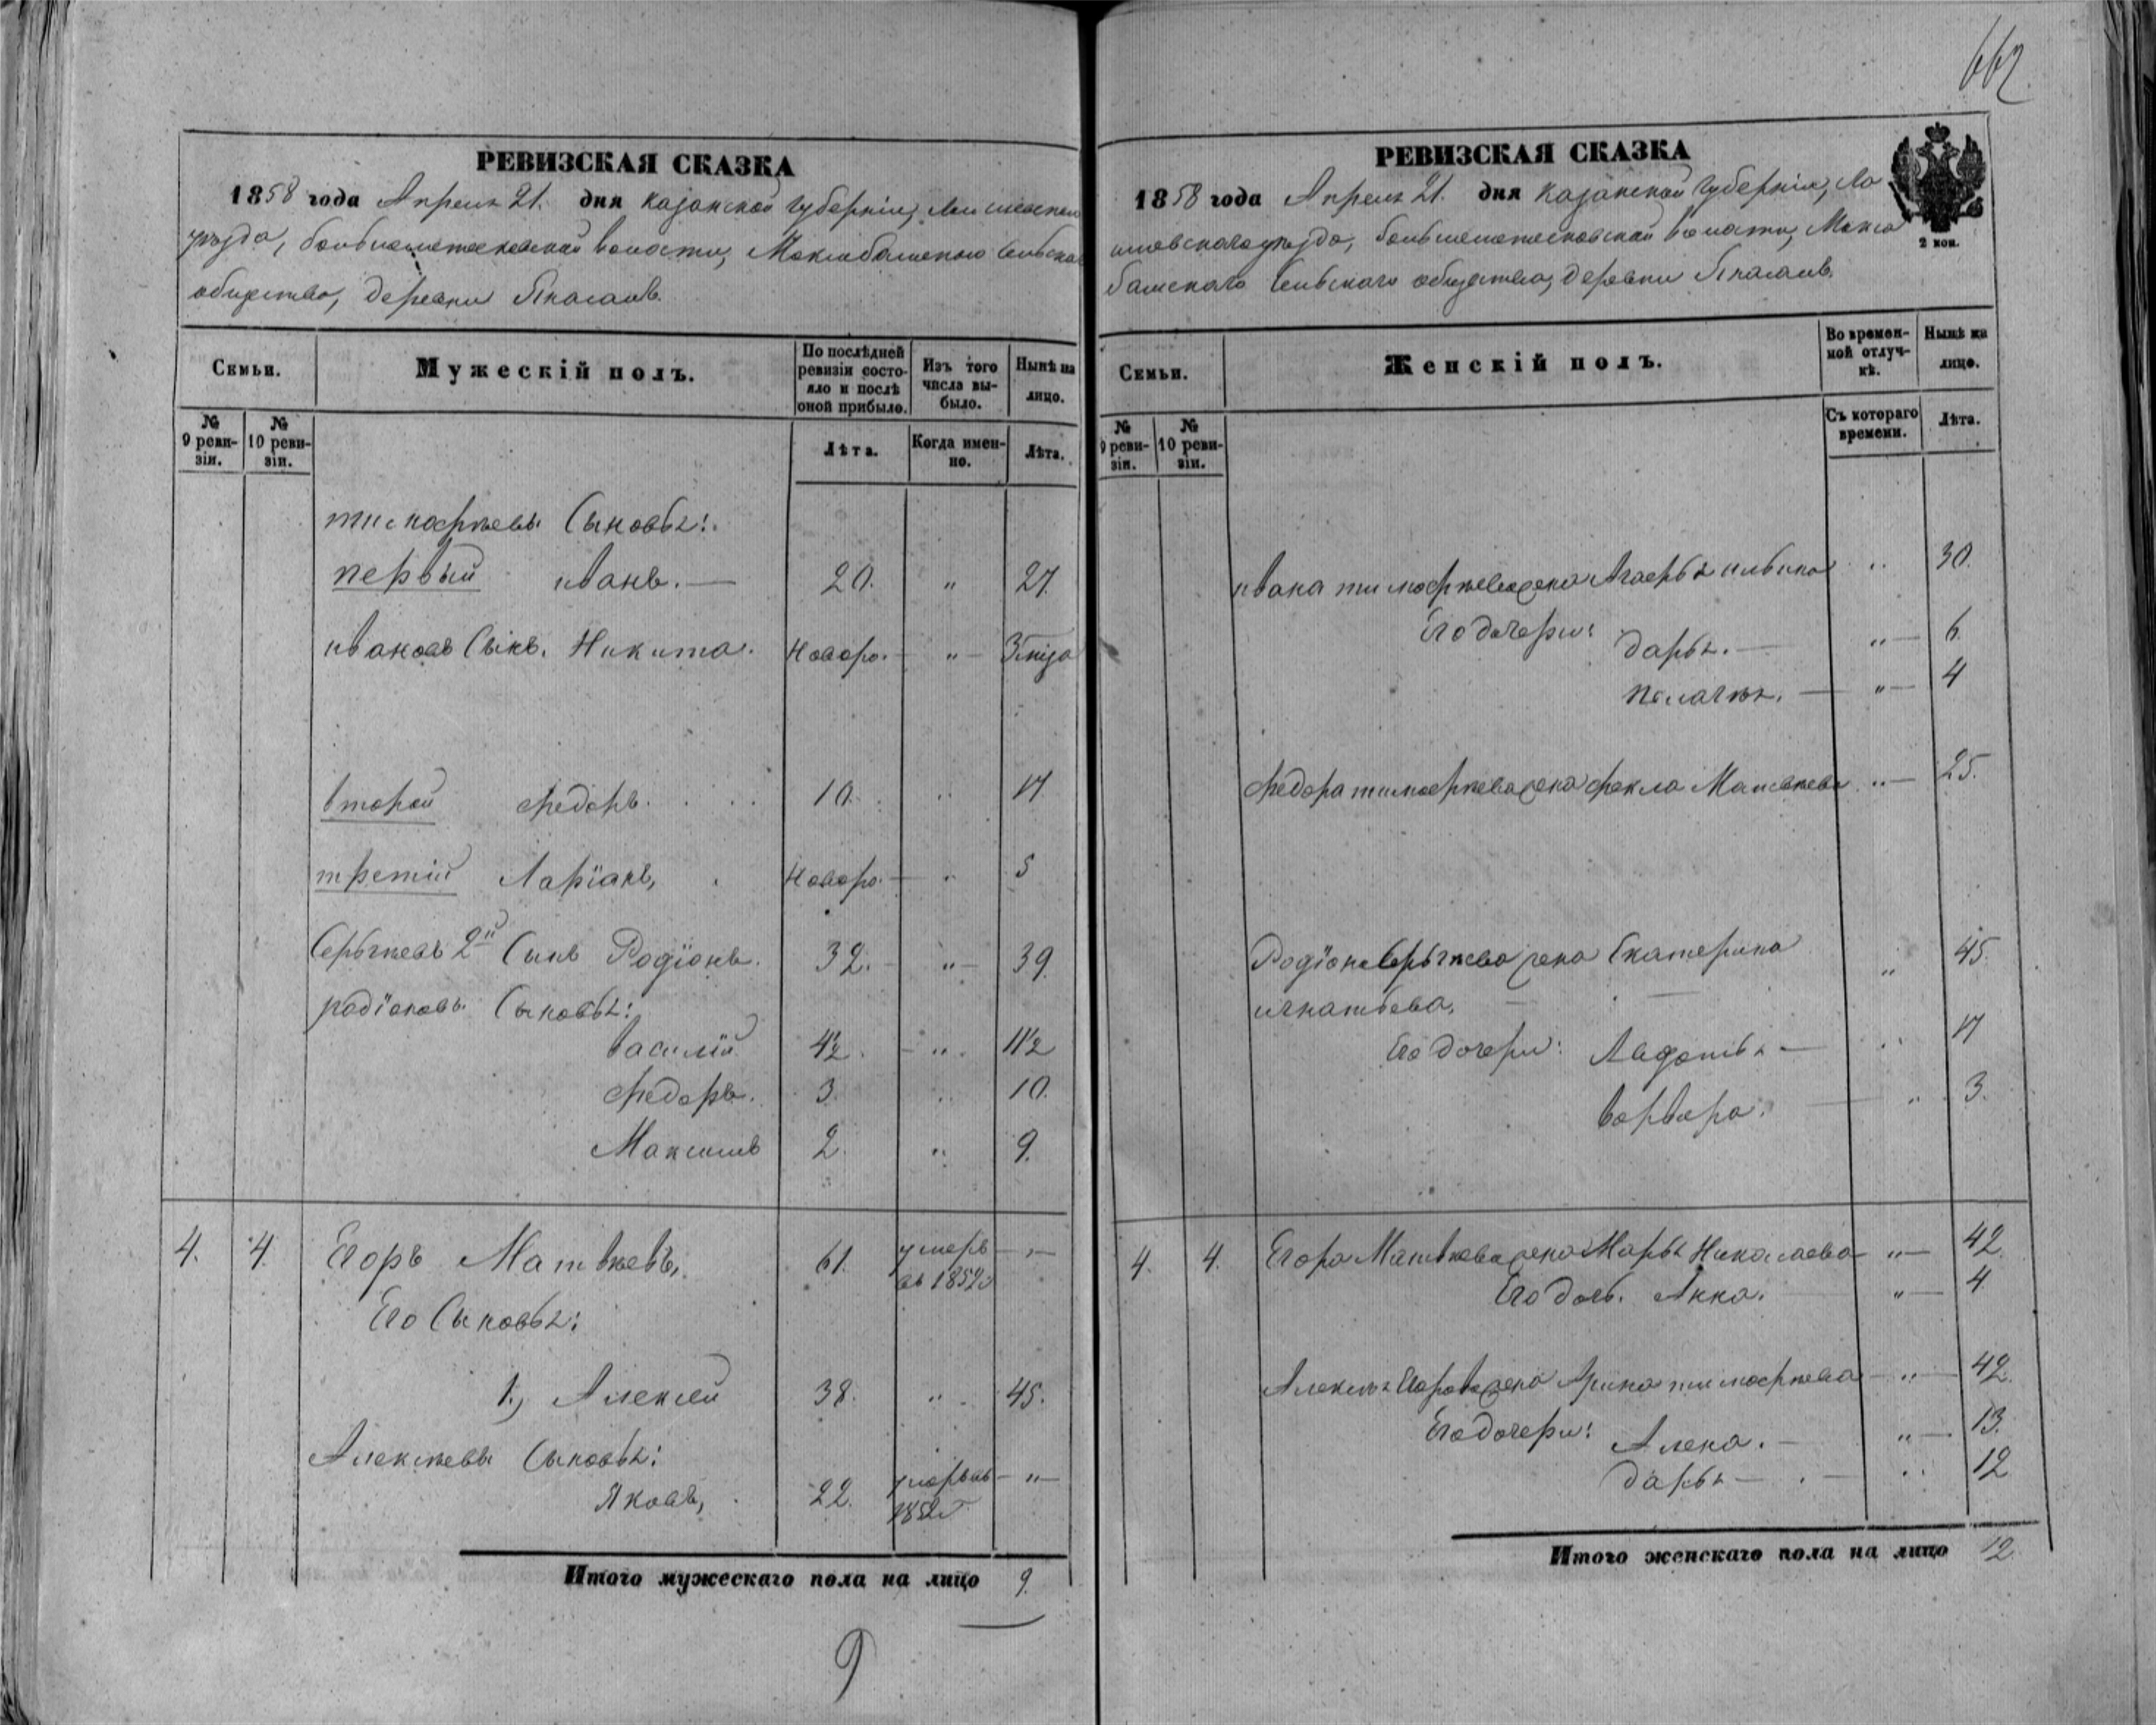 662
РЕВИЗСКАЯ СКАЗКА
1858 года Апреля 21. дня Казанской Губерніи, Лаишевскаго
уѣзда, волости, сельскаго
общества, деревни
Семьи.
Мужескій полъ.
По послѣдней ревизіи состояло и послѣ оной прибыло.
Изъ того числа выбыло.
Нынѣ на лицо.
№ 9 ревизіи.
№ 10 ревизіи.
Лѣта.
Когда именно.
Лѣта.
тимофѣевы Сыновья:
первый иванъ. — 20. " 27.
ивановъ Сынъ. Никита. Новоро. — " — 3
второй Федоръ. 10. " 17.
третій Ларіанъ, Новоро. — " 5
Сергѣевъ 2й Сынъ Родіонъ. 32. — " — 39.
родіоновы Сыновья:
василій 4½. — " 11½
Федоръ. 3. " 10.
Максимъ 2. " 9.
4. 4. Егоръ Матвѣевъ, 61. умеръ въ 1852 — " —
Его Сыновья:
1., Алексей 38. " 45.
Алексѣевы Сыновья:
Яковъ, 22. умеръ въ 1852 г. — " —
Итого мужескаго пола на лицо 9.
9
РЕВИЗСКАЯ СКАЗКА
1858 года Апреля 21. дня Казанской Губерніи, Ла
ишевскаго уѣзда, волости,
сельскаго общества, деревни
2 коп.
Семьи.
Женскій полъ.
Во временной отлучкѣ.
Нынѣ на лицо.
№ 9 ревизіи.
№ 10 ревизіи.
Съ котораго времени.
Лѣта.
ивана тимофѣева жена Агафья ильина " 30.
Его дочери: дарья. — " — 6.
пелагѣя. — " — 4
Федора тимофѣева жена фекла Матвѣева " — 25.
Родіона Сергѣева жена Екатерина " 45.
игнатьева.
Его дочери: Авдотья — " 17
варвара. — " 3.
4. 4. Егора Матвѣева жена Марья Николаева — " — 42.
Его дочь. Анна. " — 4.
Алексѣя Егорова жена Арина тимофѣева — " — 42.
Его дочери: Алена. — " — 13.
дарья — " 12
Итого женскаго пола на лицо 12